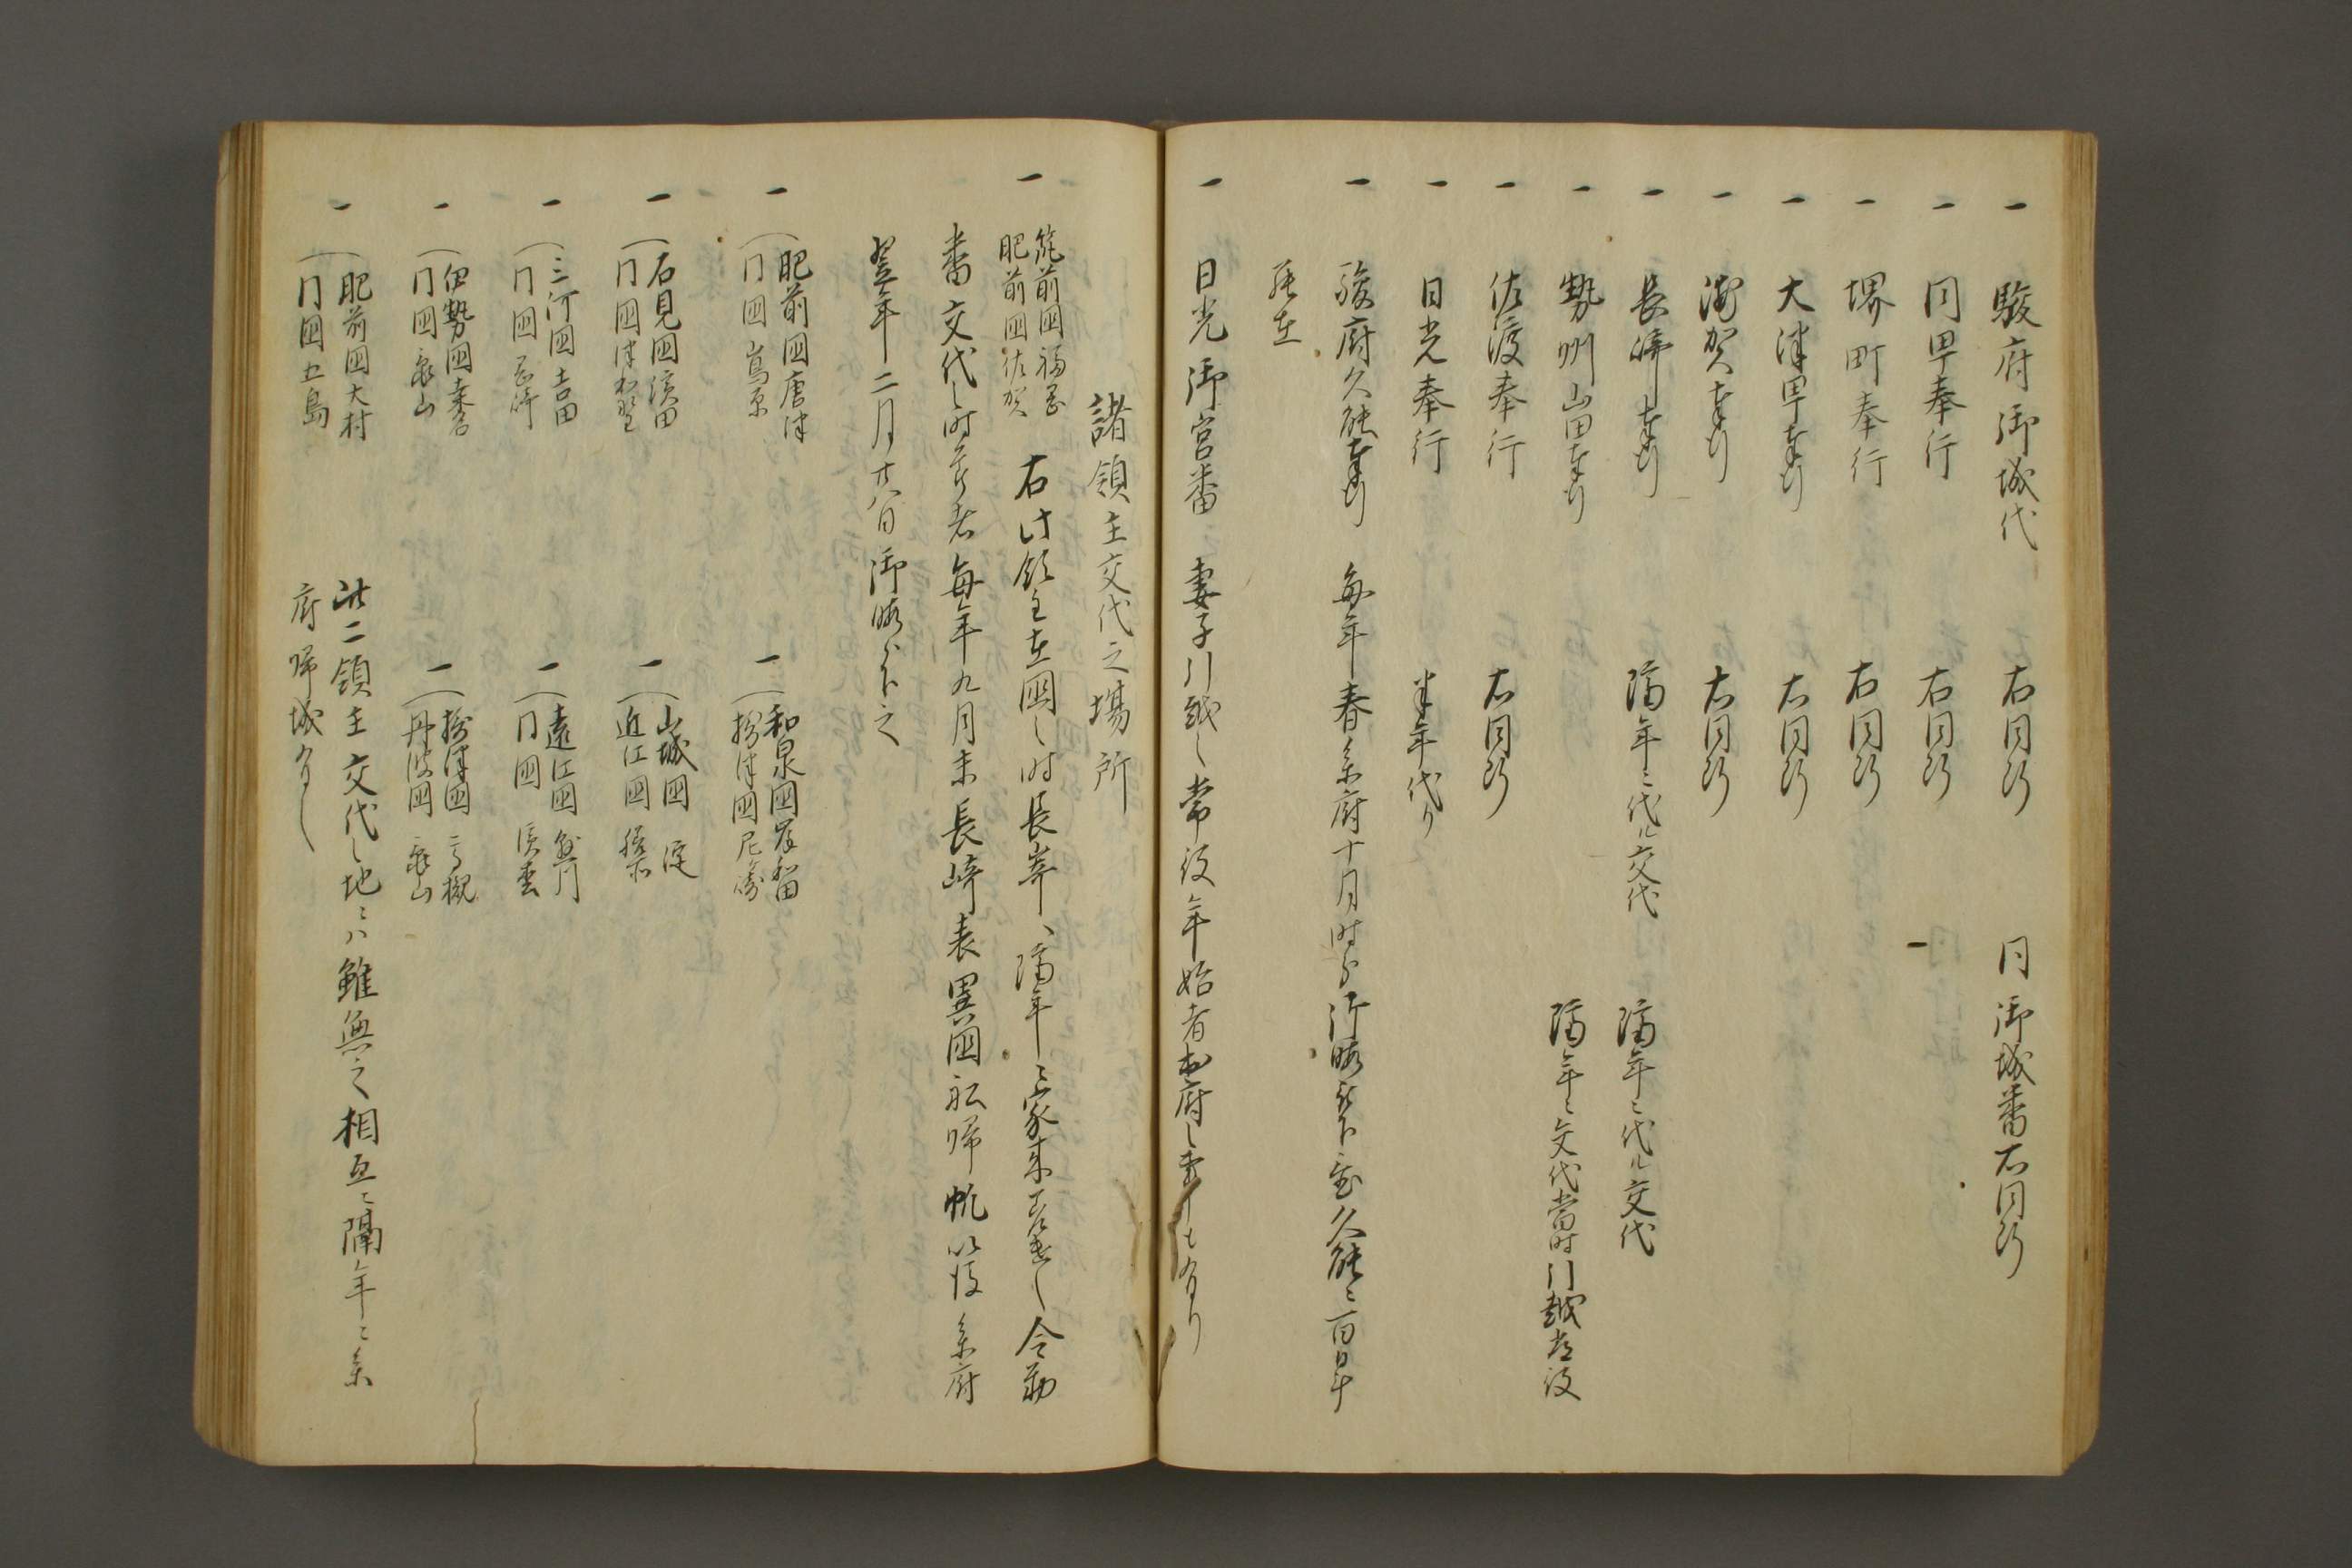 一 駿府御城代 右同断 同御城番右同断
一 同町奉行 右同断 一
一 堺町奉行 右同断
一 大津町奉行 右同断
一 浦賀奉行 右同断
一 長崎奉行 隔年ニ代ル交代 隔年ニ代ル交代
一 勢州山田奉行 隔年ニ交代當時引越常役
一 佐渡奉行 右同断
一 日光奉行 半年代り
一 駿府久能 毎年春参府十月時分御暇 久能ニ百日斗
在
一 日光御宮番 妻子引越之常役年始者出府
諸領主交代之場所
一 筑前國福岡
肥前國佐賀
右此領主在國之時長崎ヘ隔年ニ家来 令勤
番交代之時 者毎年九月末長崎表異國船帰帆以後参府
翌年二月十八日御暇被下之
一 肥前國唐津
同國嶌原
一 和泉國岸和田
摂津國尼崎
一 石見國濱田
同國津和野
一 山城國淀
近江國膳所
一 三河國吉田
同國岡崎
一 遠江國掛川
同國濱松
一 伊勢國桑名
同國亀山
一 摂津國高槻
丹波國亀山
一 肥前國大村
同國五島
此二領主交代之地ニハ雖無之相互ニ隔年ニ参
府帰城有之